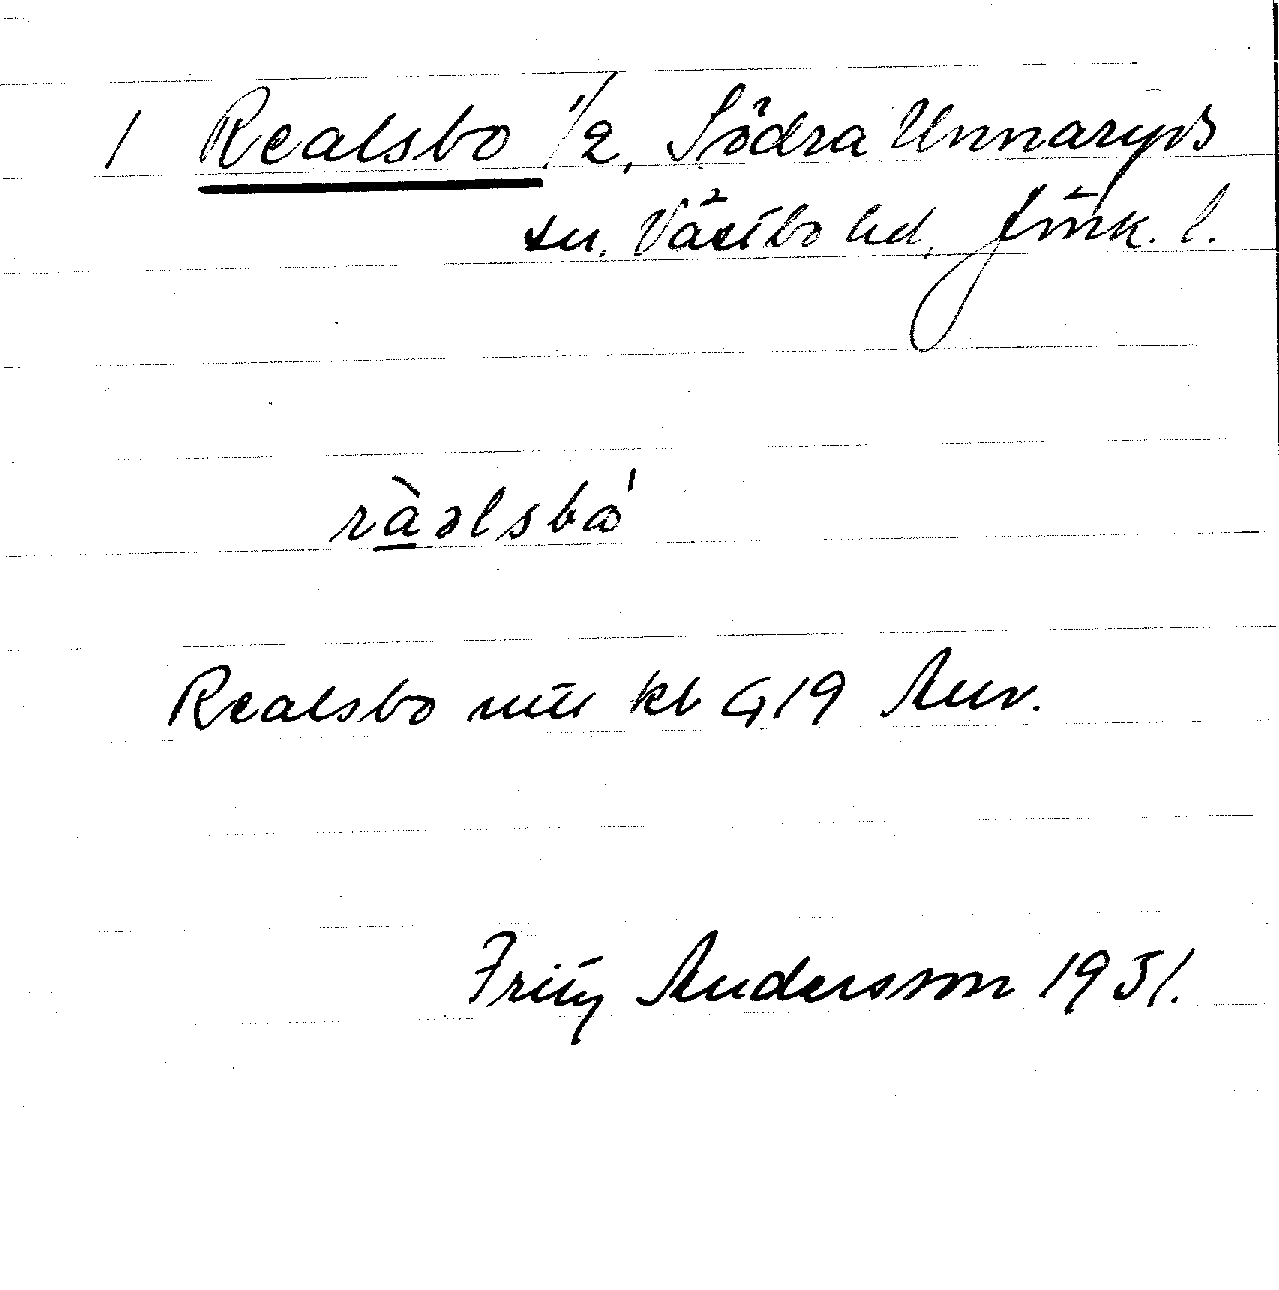 1 Realsbo 1/2, Södra Unnaryds
sn. Västbo hd, Jönk. l.
ràəlsbo'
Realsbo mtl kb G19 Anv.
Fritz Andersson 1931.